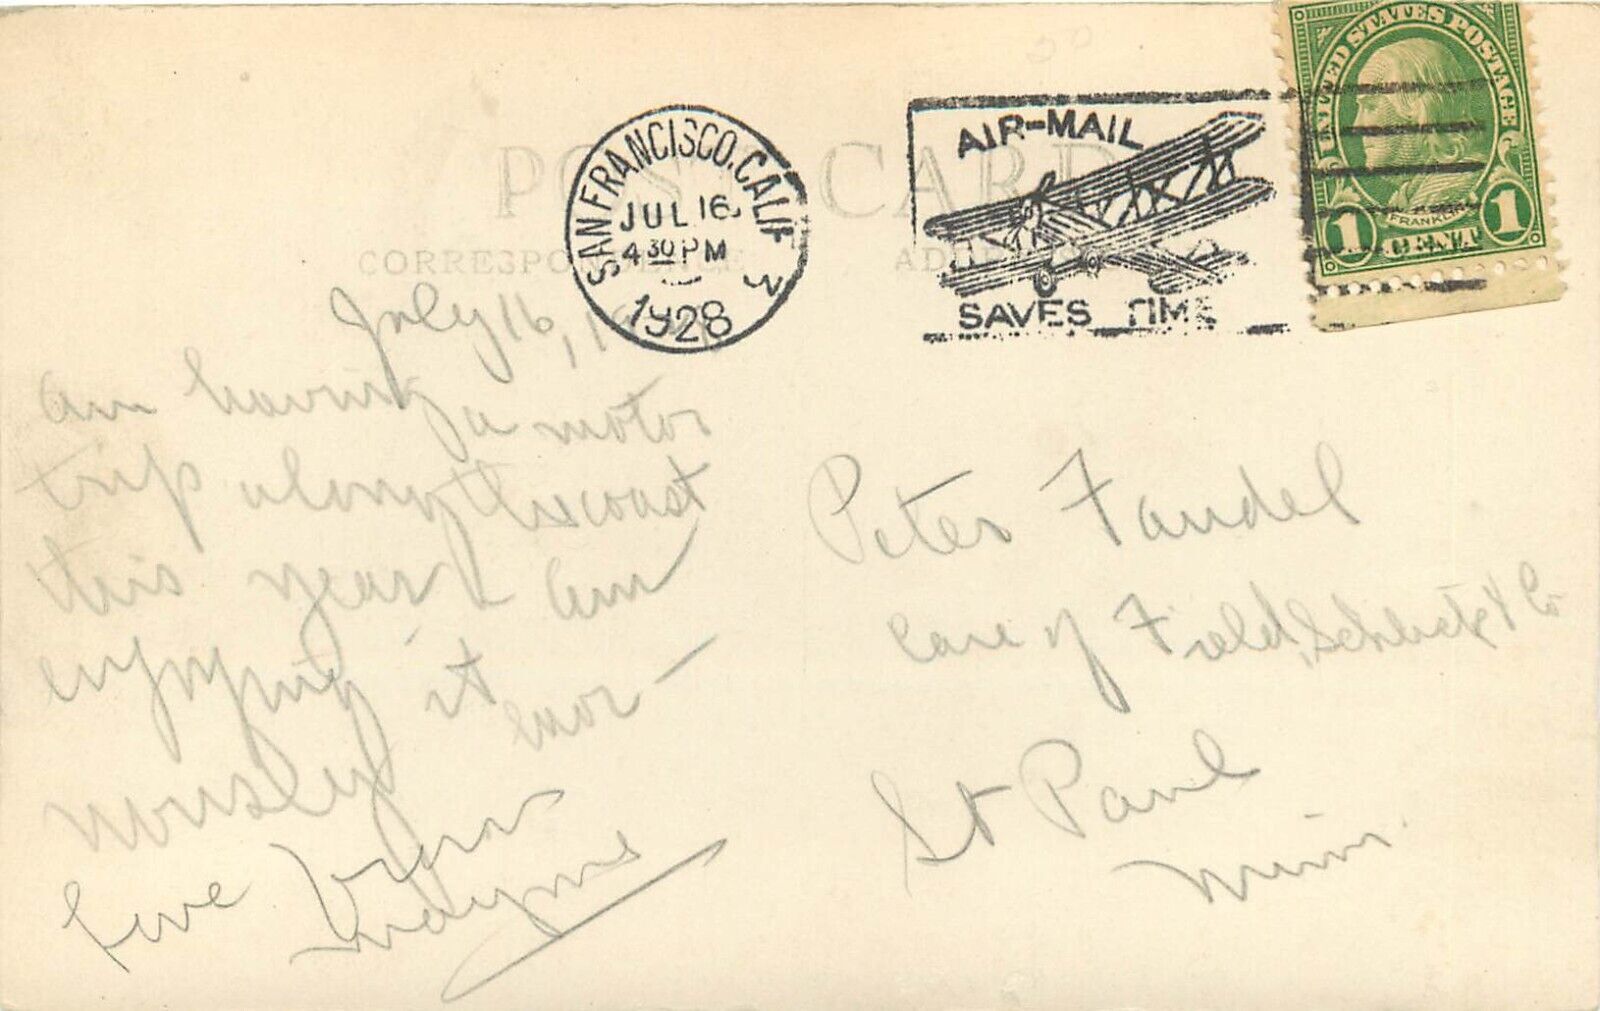 POST CARD
CORRESPONDENCE
SAN FRANCISCO, CALIF
JUL 16
4 30 PM
1928
3
AIR-MAIL
SAVES TIME
UNITED STATES POSTAGE
FRANKLIN
1 CENT 1
July 16, 19
Am having a motor
trip along the coast
this year & am
enjoying it enor-
mously
Love
Wayne
Peter Faudel
Care of Field, Schlick & Co
St Paul
Minn.